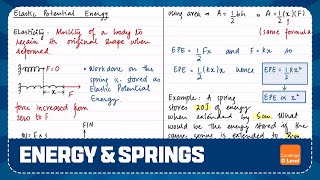 Elastic Potential Energy
Elasticity: Ability of a body to
regain its original shape when
deformed.
F=0
F
x
• Work done on the
spring is stored as
Elastic Potential
Energy.
force increased from
zero to F
F/N
Using area → A = 1/2 bh → A = 1/2 (x)(F)
(same formula
EPE = 1/2 Fx and F = kx so
EPE = 1/2 (kx)x hence EPE = 1/2 kx²
EPE ∝ x²
Example: A spring
stores 20J of energy
when extended by 5cm. What
would be the energy stored if the
same spring is extended to
ENERGY & SPRINGS
Cambridge
O Level